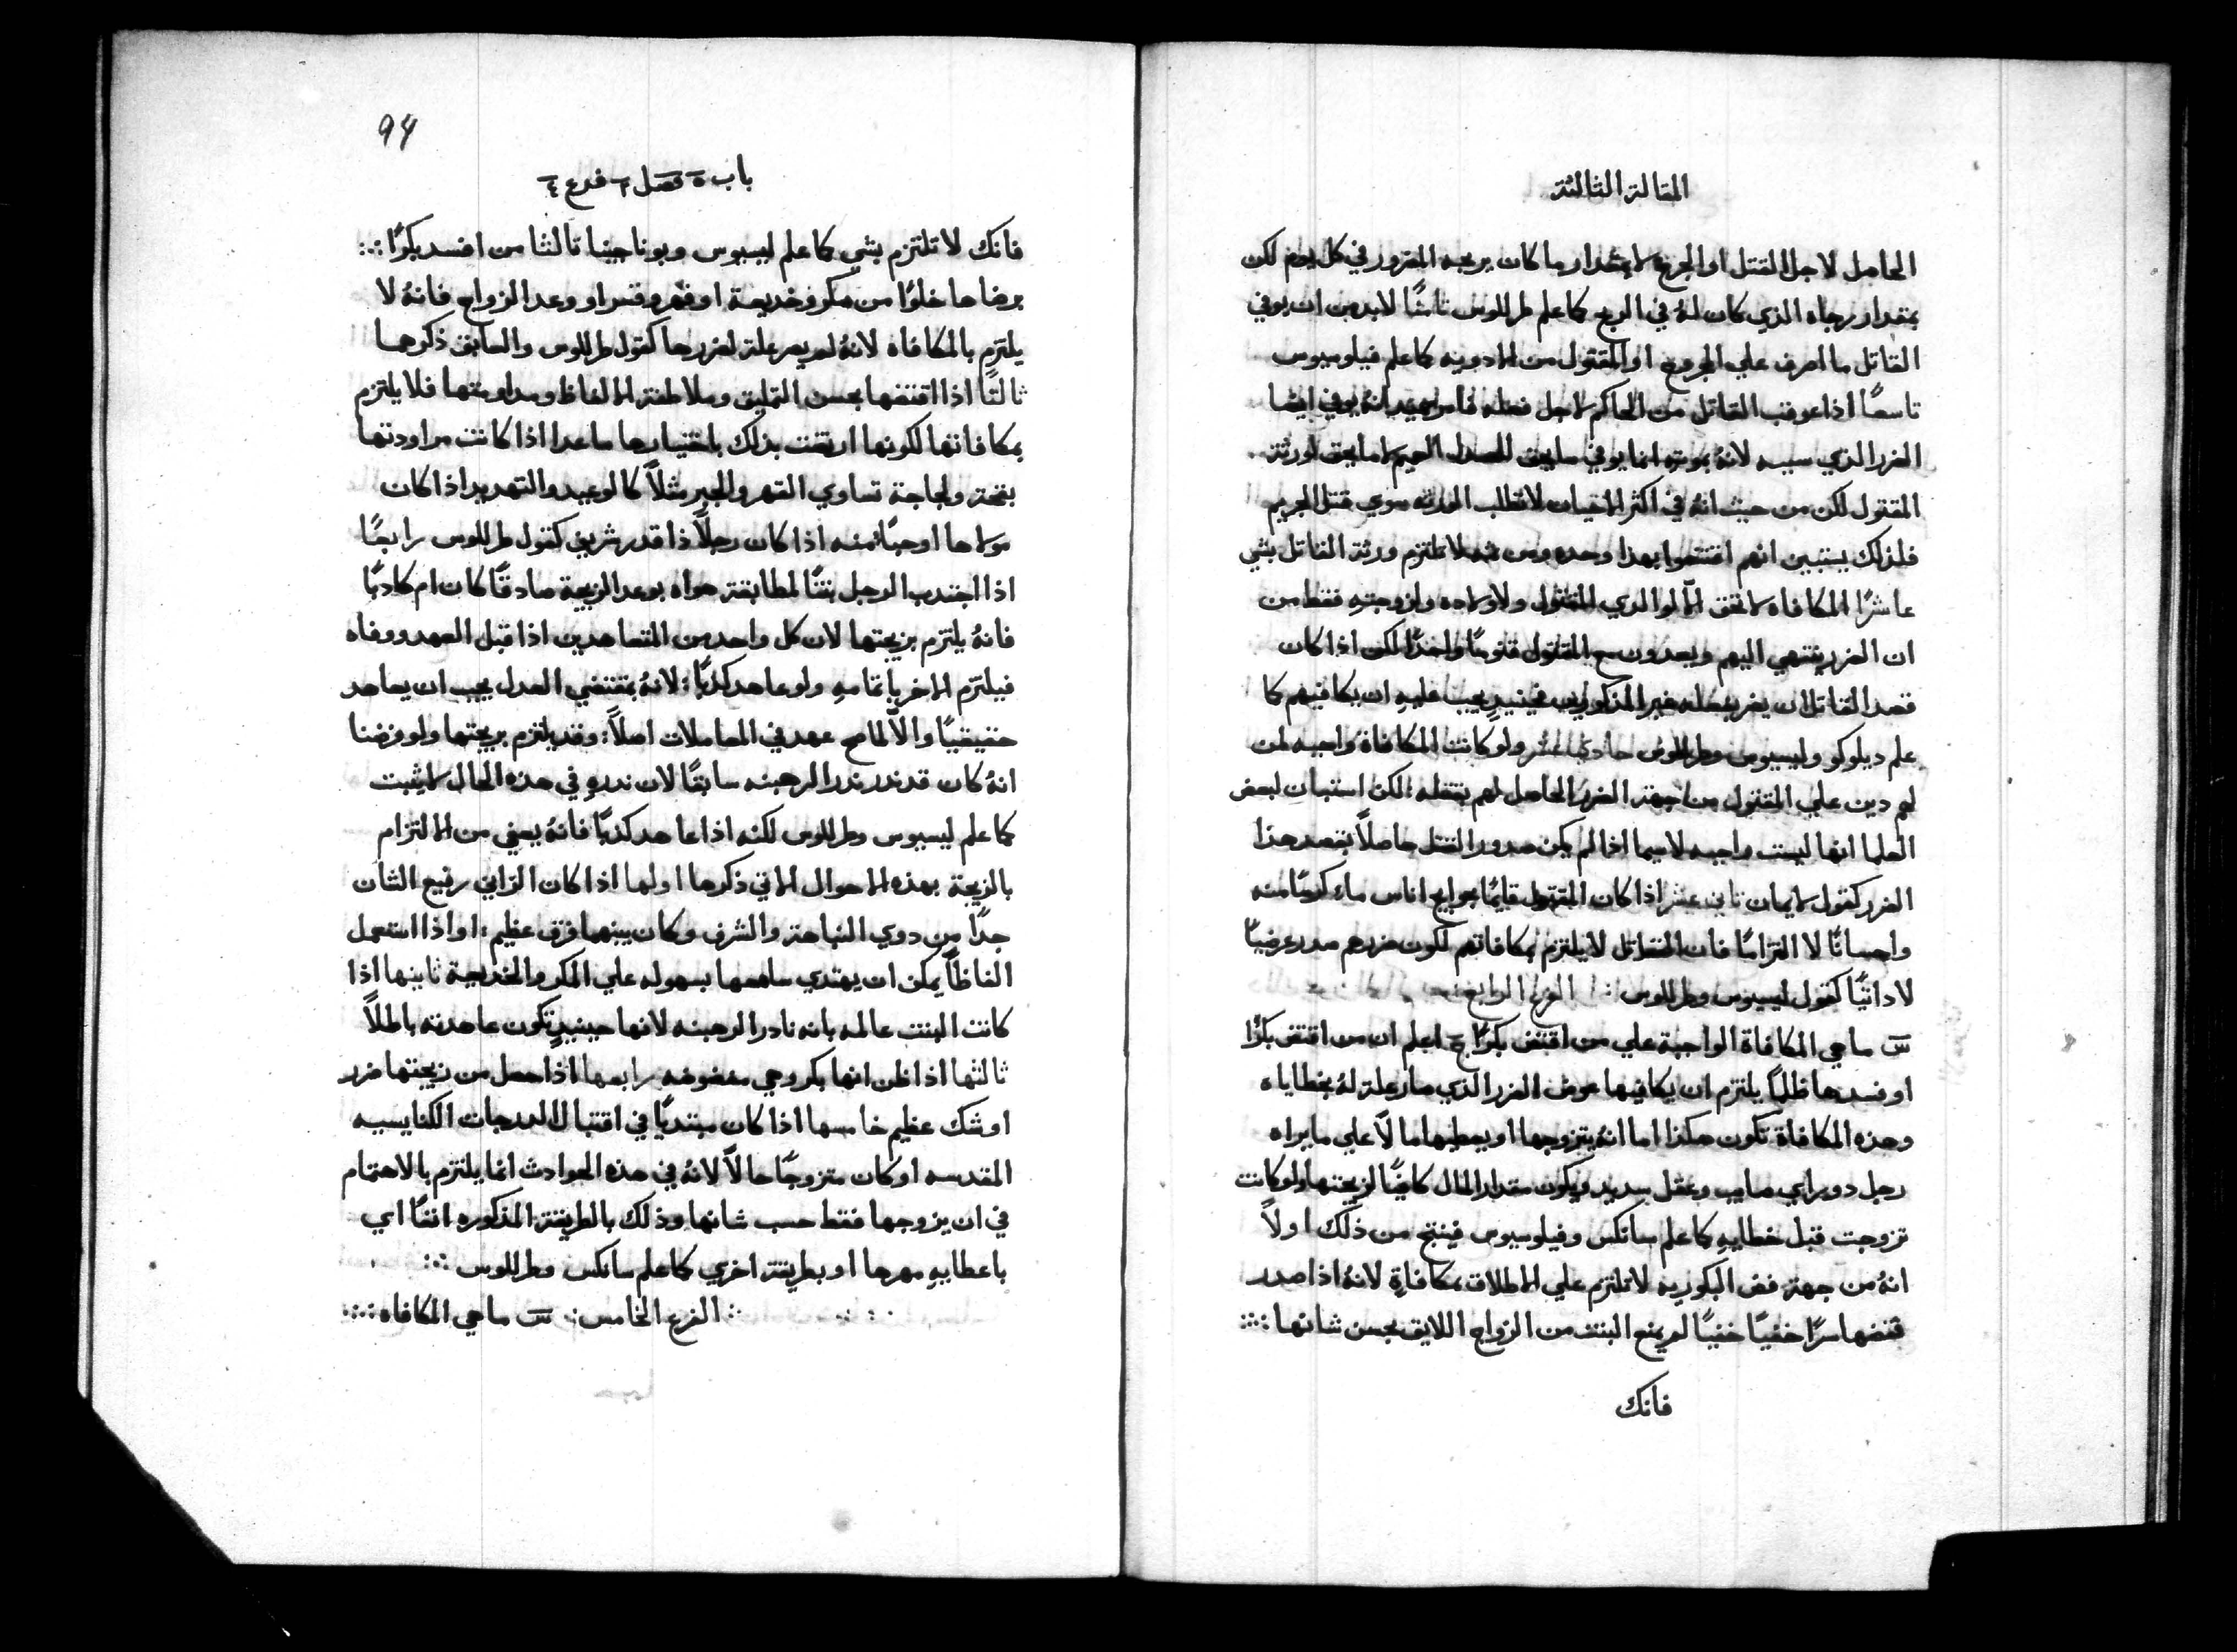 المقالة الثالثة
الحاصل لاجل القتل او الجرح لا بمقدار ما كان يربحه المضرور في كل يوم لكن
بمقدار رجاه الذي كان لهُ في الربح كما علم طرللوس ثامنًا لابد من ان يوفي
القاتل ما اصرف علي المجروح او المقتول من الادويه كما علم فيلوسيوس
تاسعًا اذا عوقب القاتل من الحاكم لاجل فعله فاس يفيد انهُ يوفي ايضا
الضرر الذي سببه لانهُ بموته انما يوفي ما يحق للعدل العميم لا ما يحق لورثة
المقتول لكن من حيث انهُ في اكثر الاحيان لا تطلب الورثه سوي قتل المجرم
فلذلك يستبين انهم اقتنعوا بهذا وحده ومن ثمه لا تلتزم ورثة القاتل بشي
عاشرًا المكافاه لا تحق الّا لوالدي المقتول ولاولاده ولزوجتهِ فقط من
ان الضرر ينتهي اليهم ويعدون مع المقتول قنومًا واحدًا لكن اذا كان
قصد القاتل ان يضر بفعله غير المذكورين فحينيدٍ يجب عليهِ ان يكافيهم كما
علم ديلوكو وليسيوس وطرللوس حادي عشر ولو كانت المكافاة واجبه لمن
لهم دين علي المقتول من جهة الضرر الحاصل لهم بقتله : لكن استبان لبعض
العلما انها ليست واجبه لا سيما اذا لم يكن صدور القتل حاصلاً بقصد هذا
الضرر كقول لايمان ثاني عشر اذا كان المقتول قايمًا بحوايج اناس ما كرمًا منه
واحسانًا لا التزامًا فان القاتل لا يلتزم بمكافاتهم لكون ضررهم صدر عرضيًا
لا داتيًا كقول ليسيوس وطرللوس : الفرع الرابع
سـ ما هي المكافاة الواجبة علي من اقتض بكرًا جـ اعلم ان من اقتض بكرًا
او فسدها ظلمًا يلتزم ان يكافيها عوض الضرر الذي صار علة لهُ بخطاياه
وهذه المكافاة تكون هكذا اما انهُ يتزوجها او يعطيها مالاً علي ما يراه
رجل دو راي صايب وعقل سديد ويكون مقدار المال كافيًا لزيجتها ولو كانت
تزوجت قبل خطايهِ كما علم سانكس وفيلوسيوس فينتج من ذلك اولاً
انهُ من جهة فض البكوريه لا تلتزم علي الاطلاق بمكافاةٍ لانهُ اذا صدر
قضها سرًا خفيًا خفيًا لم يمنع البنت من الزواج اللايق بحسن شانها :·:
فانك
94
باب ٥ فصل ٢ فرع ٤
فانك لا تلتزم بشي كما علم ليسيوس وبوناجينا تالثا من افسد بكرًا :·:
برضاها خلوًا من مكر وخديعة او قهر وقسر او وعد الزواج فانهُ لا
يلتزم بالمكافاه لانهُ لم يصر علة لضررها كقول طرللوس والسابق ذكرهما
ثالثًا اذا اقتضها بحسن التمليق وملاطفة الالفاظ ومداومتها فلا يلتزم
بمكافاتها لكونها ارتضت بذلك باختيارها ما عدا اذا كانت مراودتها
بقحة ولجاجة تساوي القهر والجبر مثلاً كالوعيد والتهديد اذا كان
مولاها او حبًا منه اذا كان رجلاً ذا قدر شريف كقول طرللوس رابعًا
اذا اجتدب الرجل بنتًا لمطابقة هواه بوعد الزيجة صادقًا كان ام كادبًا
فانهُ يلتزم بزيجتها لان كل واحد من المتعاهدين اذا قبل العهد ووفاه
فيلتزم الاخر باتمامهِ ولو عاهد كدبًا : لانهُ بمقتضي العدل يجب ان يعاهد
حقيقيًا والّا لما صح عهد في المعاملات اصلاً : وقد يلتزم بزيجتها ولو فرضنا
انهُ كان قد ندر ندر الرهبنه سابقًا لان ندرهِ في هذه الحال لا يثبت
كما علم ليسيوس وطرللوس لكنه اذا عاهد كدبًا فانهُ يعفي من الالتزام
بالزيجة بهذه الاحوال الاتي ذكرها اولها اذا كان الزاني رفيع الشان
جدًا من دوي النباهة والشرف وكان بينهما فرق عظيم : او اذا استعمل
الفاظاً يمكن ان يهتدي سامعها بسهوله علي المكر والخديعة ثانيها اذا
كانت البنت عالمه بانه نادر الرهبنه لانها حينيدٍ تكون عاهدته باطلاً
ثالثها اذا ظن انها بكر وهي مفضوضه رابعها اذا حصل من زيجتها ضرر
او شك عظيم خامسها اذا كان مبتديًا في اقتبال الدرجات الكنايسيه
المقدسه او كان متزوجًا حالاً لانهُ في هذه الحوادث انما يلتزم بالاهتمام
في ان يزوجها فقط حسب شانها وذلك بالطريقة المذكوره انفًا اي
باعطايهِ مهرها او بطريقة اخري كما علم سانكس وطرللوس :·:
الفرع الخامس : سـ ما هي المكافاه :·: